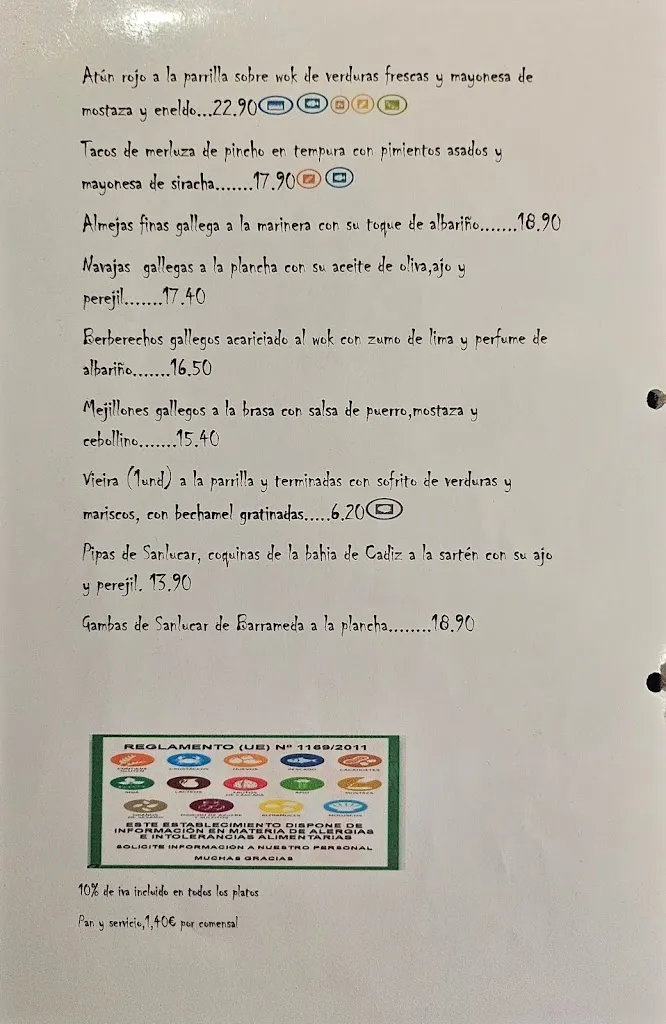 Atún rojo a la parrilla sobre wok de verduras frescas y mayonesa de
mostaza y eneldo...22.90
Tacos de merluza de pincho en tempura con pimientos asados y
mayonesa de siracha.......17.90
Almejas finas gallega a la marinera con su toque de albariño.......18.90
Navajas gallegas a la plancha con su aceite de oliva,ajo y
perejil.......17.40
Berberechos gallegos acariciado al wok con zumo de lima y perfume de
albariño.......16.50
Mejillones gallegos a la brasa con salsa de puerro,mostaza y
cebollino.......15.40
Vieira (1und) a la parrilla y terminadas con sofrito de verduras y
mariscos, con bechamel gratinadas.....6.20
Pipas de Sanlucar, coquinas de la bahia de Cadiz a la sartén con su ajo
y perejil. 13.90
Gambas de Sanlucar de Barrameda a la plancha........18.90
REGLAMENTO (UE) Nº 1169/2011
CONTIENE GLUTEN CRUSTÁCEOS HUEVOS PESCADO CACAHUETES
SOJA LÁCTEOS FRUTOS DE CÁSCARA APIO MOSTAZA
ALTRAMUCES MOLUSCOS
ESTE ESTABLECIMIENTO DISPONE DE
INFORMACIÓN EN MATERIA DE ALERGIAS
E INTOLERANCIAS ALIMENTARIAS
SOLICITE INFORMACIÓN A NUESTRO PERSONAL
MUCHAS GRACIAS
10% de iva incluido en todos los platos
Pan y servicio,1,40€ por comensal